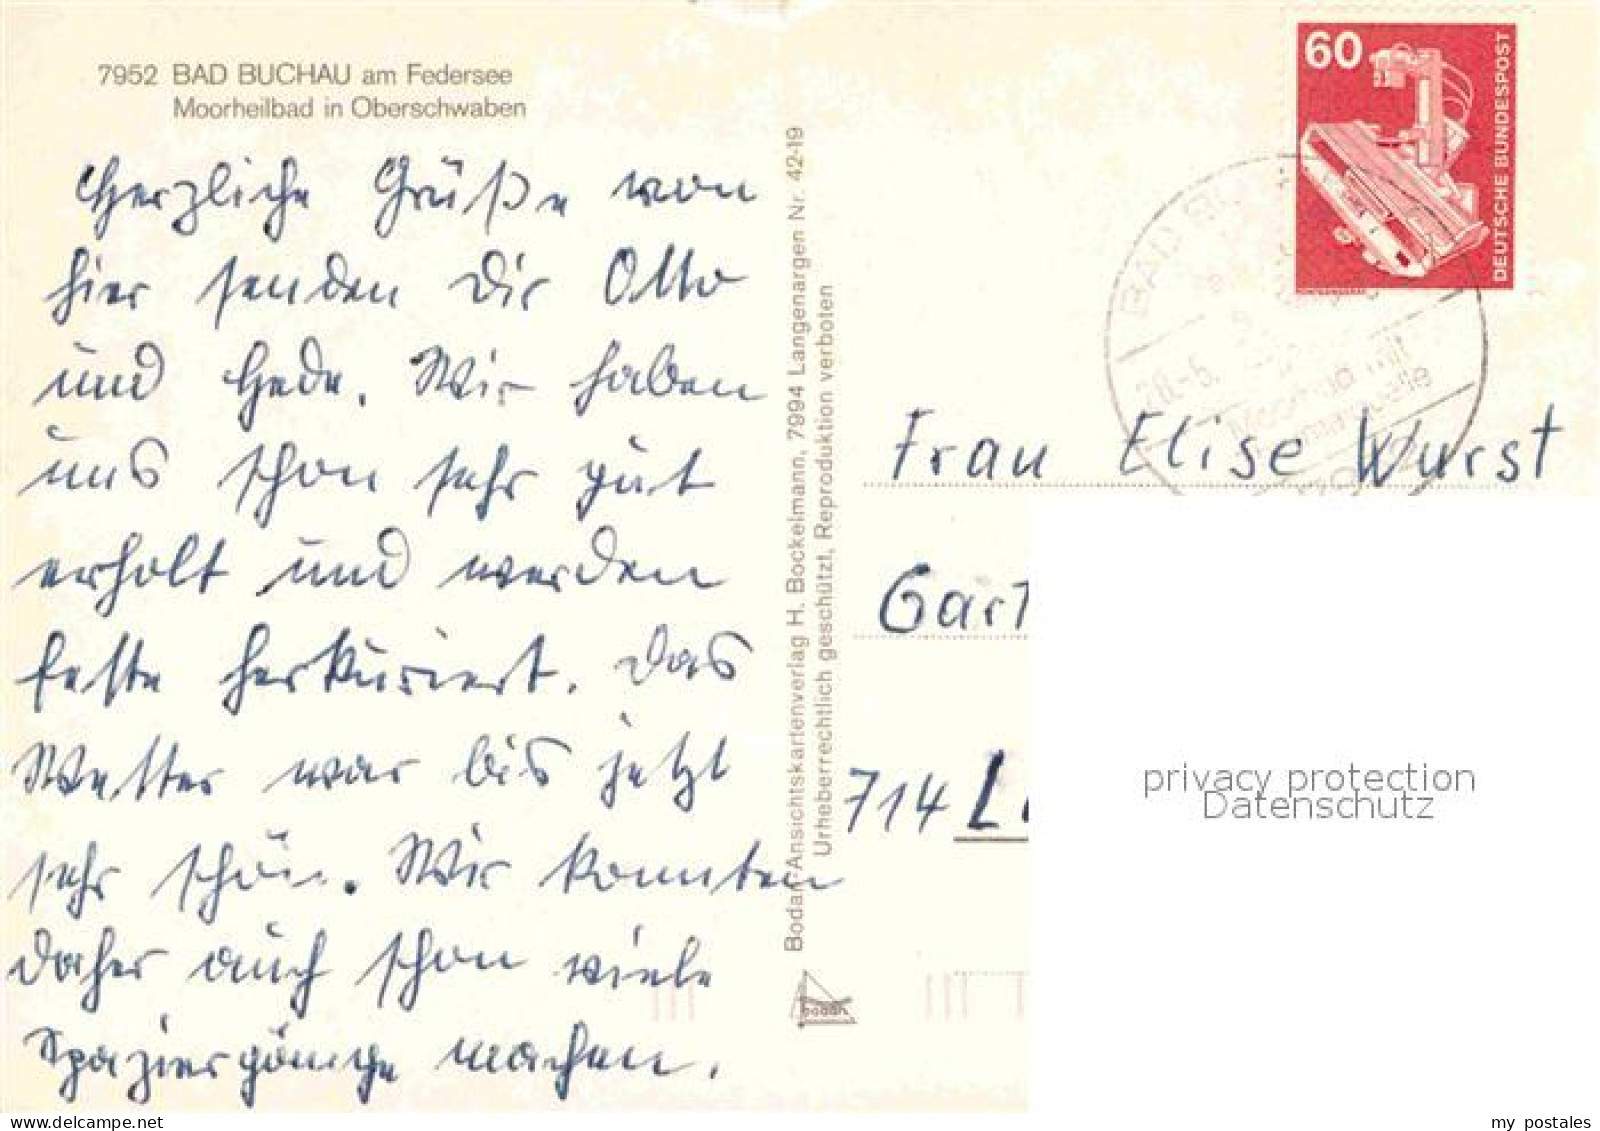 7952 BAD BUCHAU am Federsee
Moorheilbad in Oberschwaben
Herzliche Grüße von
hier senden Dir Otto
und Hede. Wir haben
uns schon sehr gut
erholt und werden
feste herkuriert. Das
Wetter war bis jetzt
sehr schön. Wir konnten
daher auch schon viele
Spaziergänge machen.
Bodan-Ansichtskartenverlag H. Bockelmann, 7994 Langenargen Nr. 42-19
Urheberrechtlich geschützt, Reproduktion verboten
bodan
60
DEUTSCHE BUNDESPOST
BAD
28.-5.
Moorbad mit
Frau Elise Wurst
Gart
714 L
privacy protection
Datenschutz
my postales